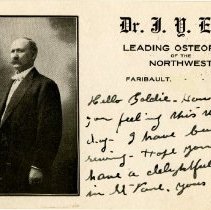 Dr. J. Y. E
LEADING OSTEOP
OF THE
NORTHWEST
FARIBAULT,
Hello Goldie - How
you feeling this
day - I have been
sewing - Hope you
have a delightful
in St Paul, yours